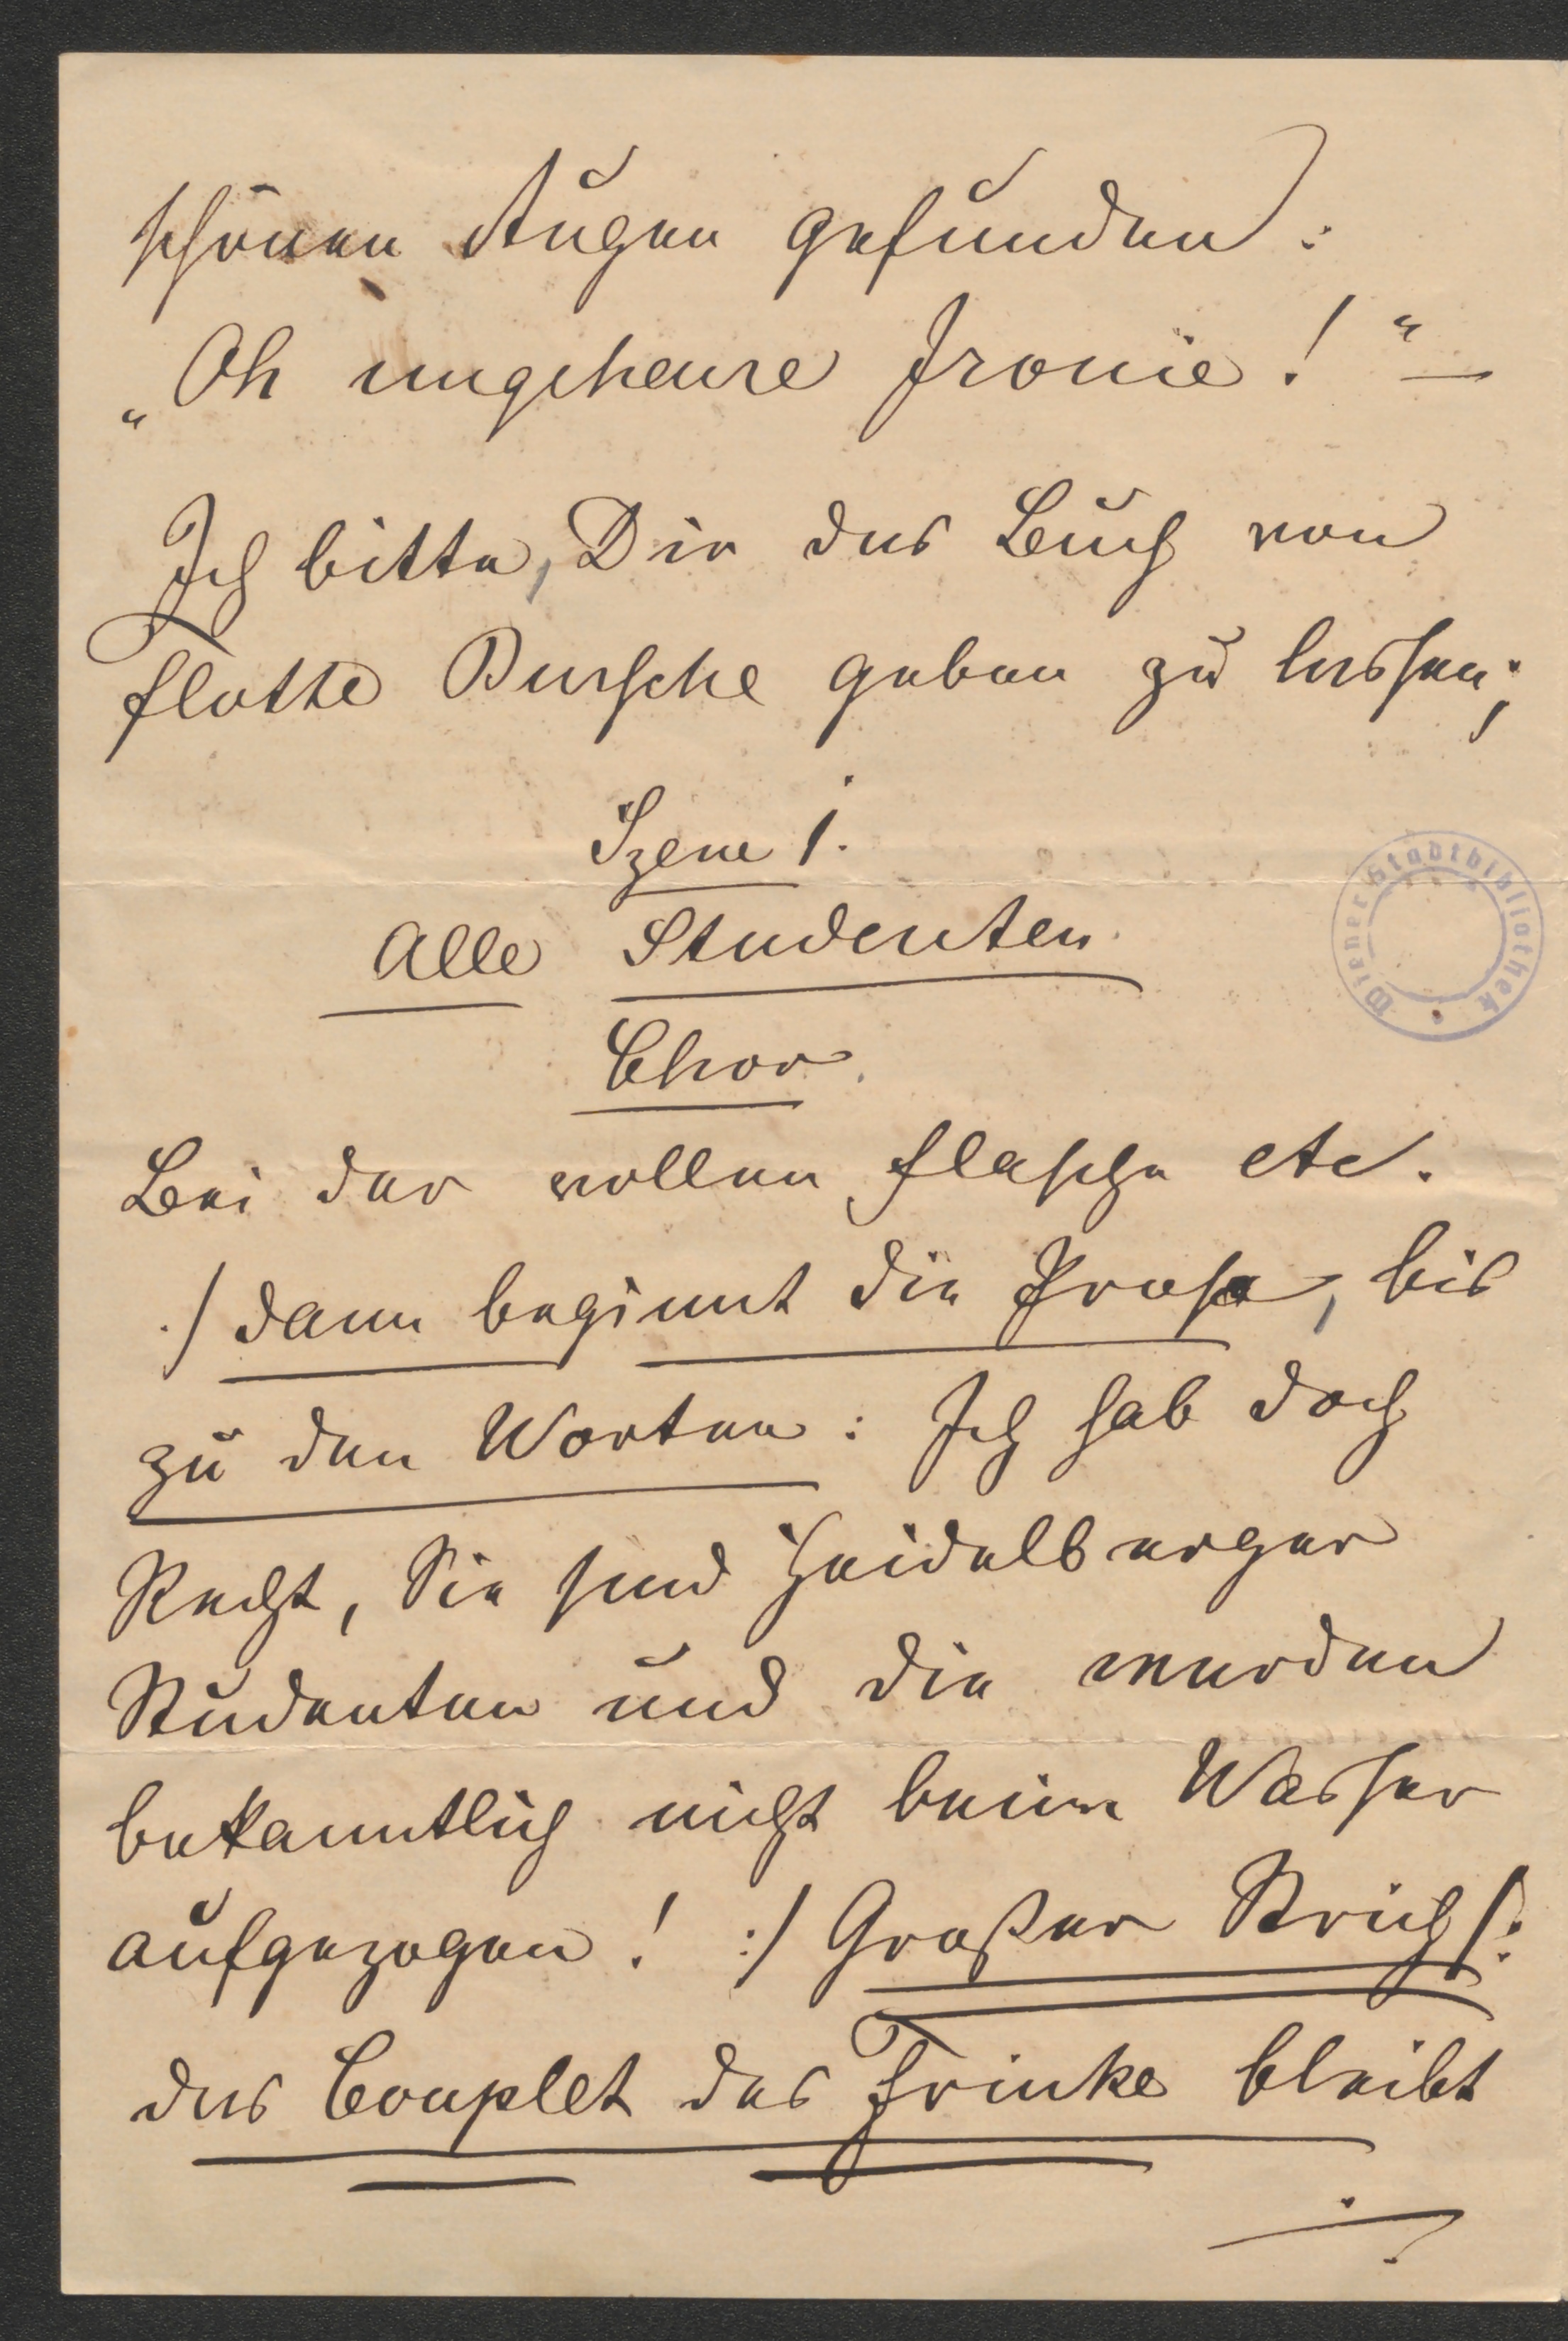 schönen Augen gefunden:
„Oh ungeheure Ironie!“ —
Ich bitte, Dir das Buch von
flotte Bursche geben zu lassen;
Szene 1.
Alle Studenten
Chor.
Bei der vollen Flasche etc.
./ dann beginnt die Prosa, bis
zu den Worten: Ich hab doch
Recht, Sie sind Heidelberger
Studenten und die werden
bekanntlich nicht beim Wasser
aufgezogen! :/ Großer Strich /:
das Couplet des Frinke bleibt
./.
Wiener Stadtbibliothek